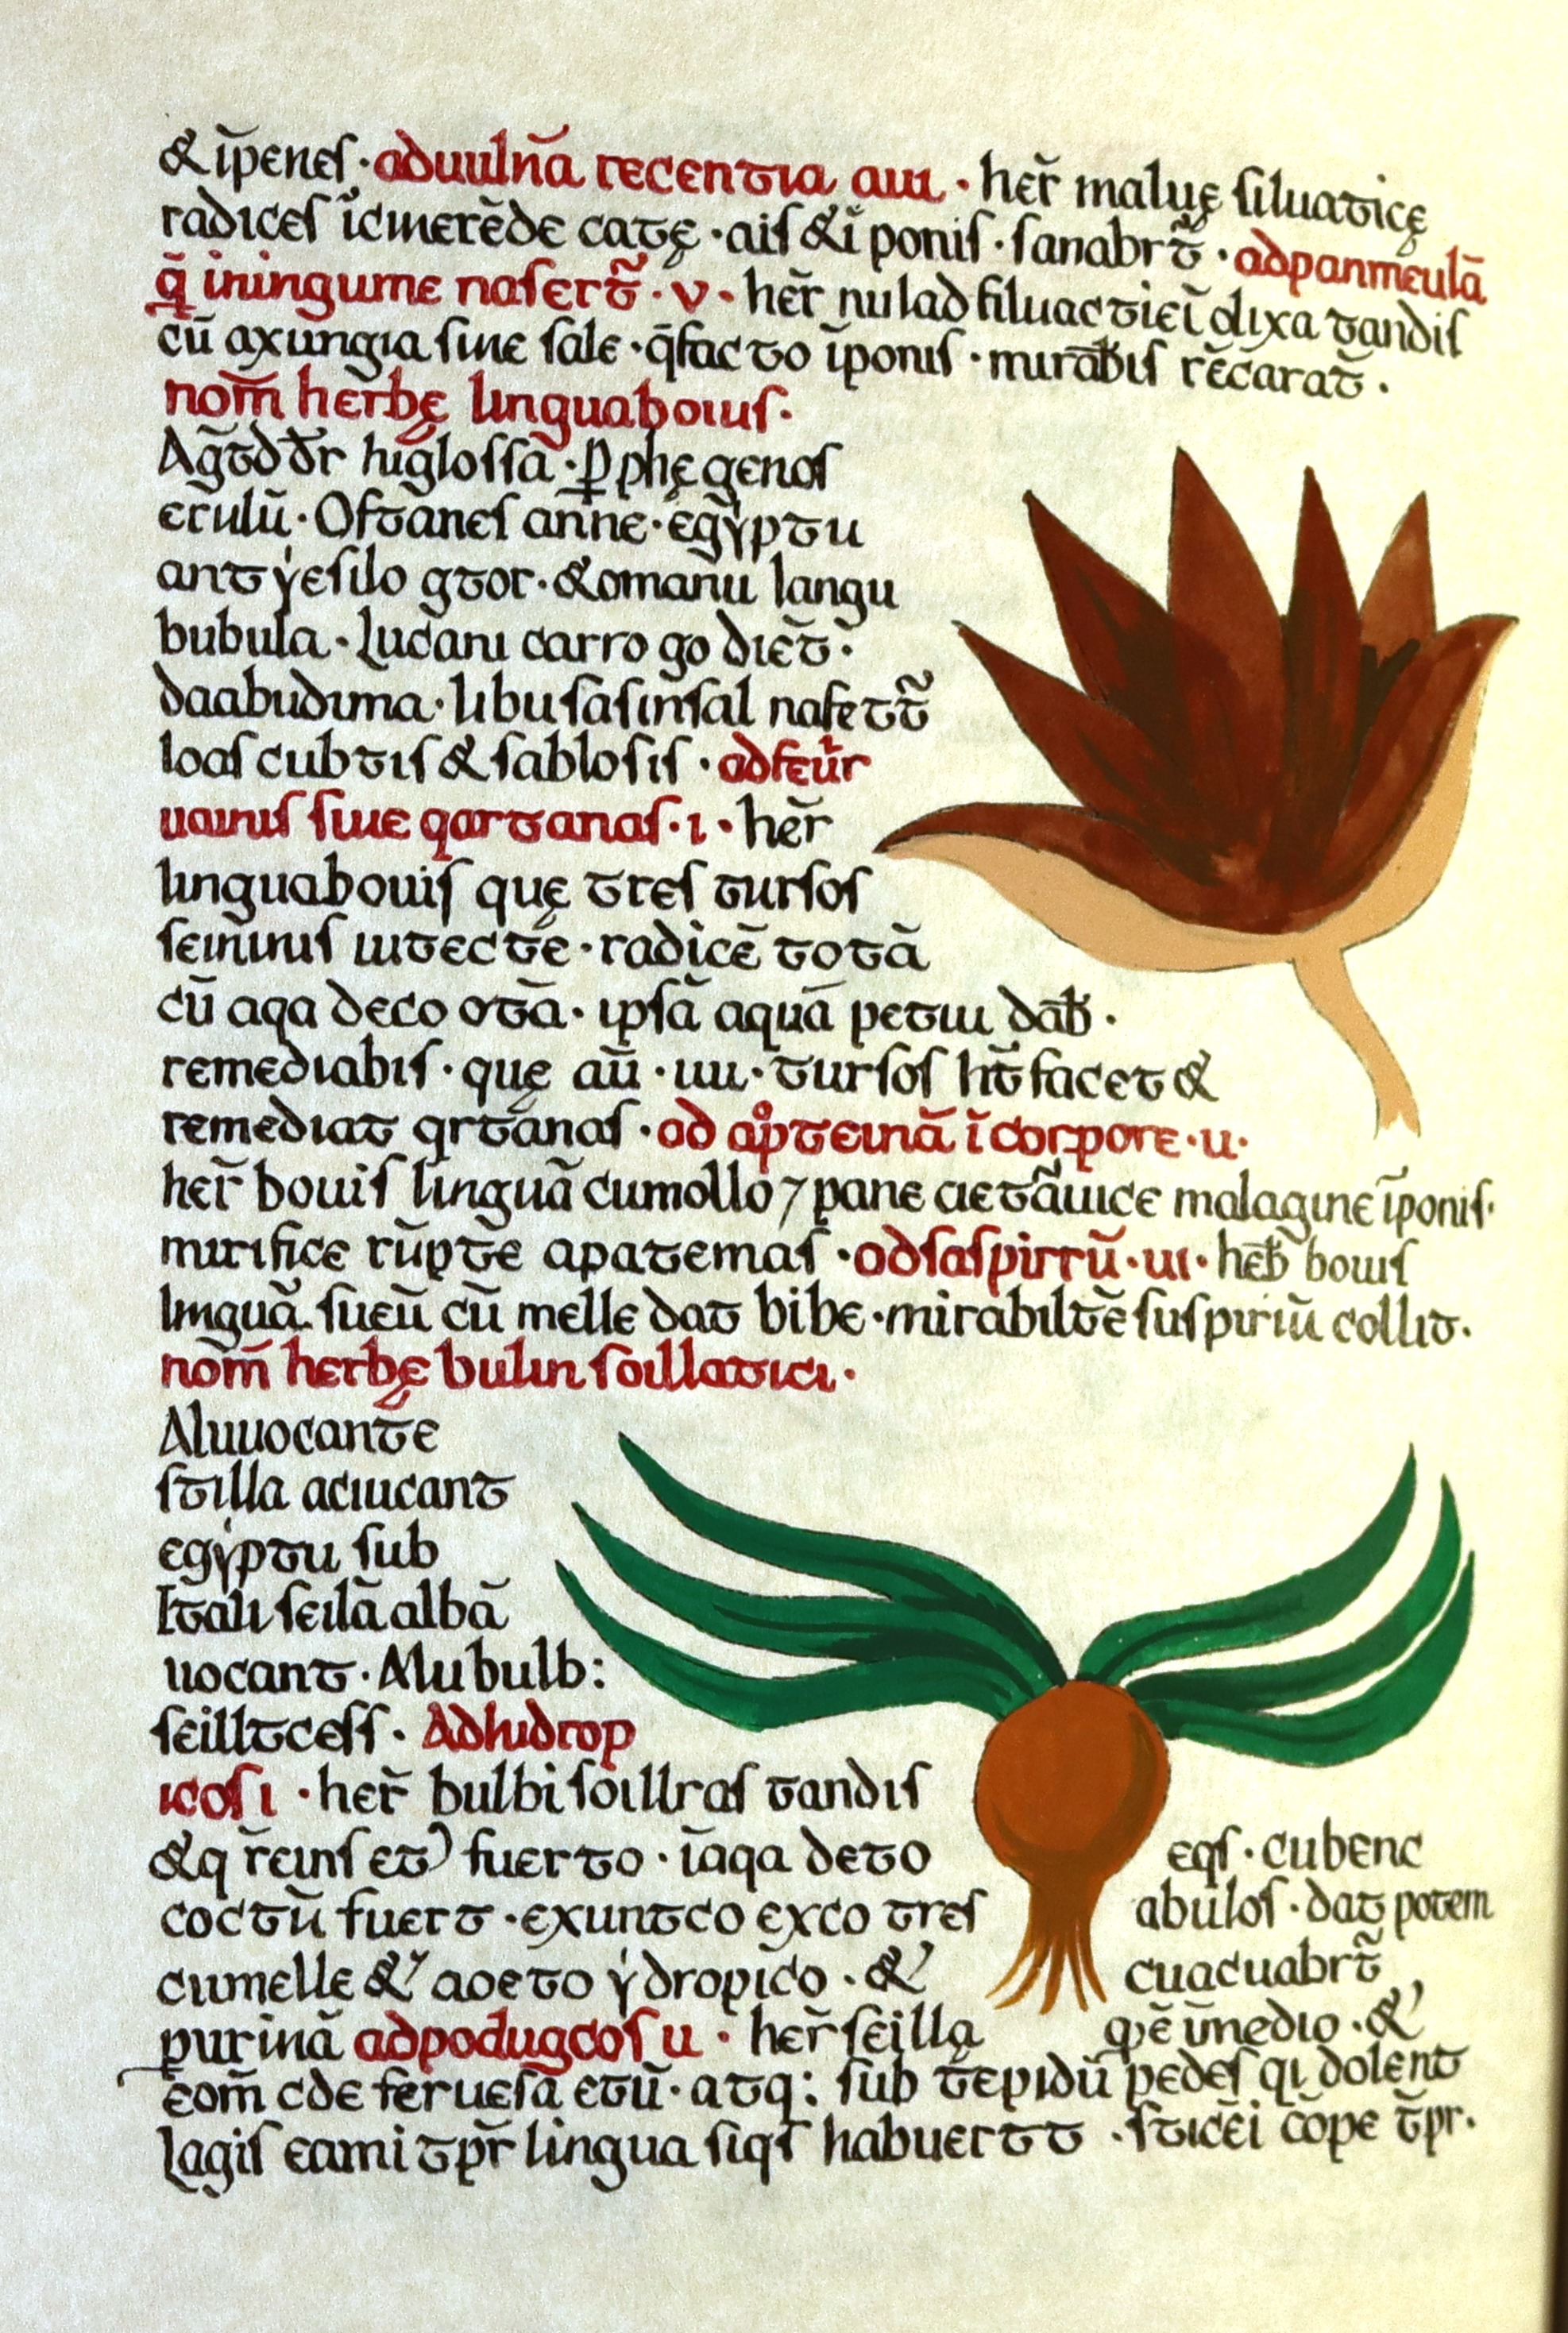 & īpenes · aduulna̅ recentia aui · her̅ maluę siluaticę
radices ic̅inerēde catę · ais &i̅ ponis · sanabrt̅ · adpanmeulā
q̄ iningume nasert̅ · v · her̅ nulad filuactiei̅ dixa tandis
cū axungia sine sale · q̄facto īponis · mirab̅is rēc̅arat̅ ·
nom̅ herbę linguabouis ·
Ag̅tdd̅r higlossā · P̱phę genos
erulū · Ostanes anne · egẏptu
antẏesilo gtor · &omanu langu
bubula · Lucani carro go diēt̅ ·
daabudima · libusasinsal nafett̅
loas cubtis & sablosis · adfeur̅
uainis siue qartanas · i · her̅
linguabouis quę tres tursos
semini̅s intectē · radicē totā
cū aqa deco otā · ipsā aquā petui dab̅ ·
remediabis · quę aū · iiii · tursos ht̅ facet &
remediat qrtanas · ad ap̊teinā i̅ corpore · u ·
her̅ bouis linguā cumollo ⁊ pane aetāuice malagine īponis ·
mirifice rūptē apatemas · adsaspirrū · ui · heb̅ bouis
linguā sueū cū melle dat bibe · mirabiltē suspiriū collit ·
nom̅ herbę bulin soillatici ·
Aluuocantē
stilla aciucant
egẏptu sub
Itali seilā albā
uocant · Alu bulb:
seilltcess · Adhidrop
icos i · her̅ bulbi soillras tandis
&q rēins et) fuerto · īaqa deto eqs · cubenc
coctū fuert · exuntco exco tres abulos · dat potem
cumelle &' aoeto ẏdropico · &' cuacuabrt̅
purinā adpodugcos u · her̅ seilla qē īmedio · &'
eom̅ cde feruesa etū · atq: sub tēpidū pedes qi dolent
Lagis eami tpr̅ lingua siqs habuertt · sticēi cōpe t̅pr ·